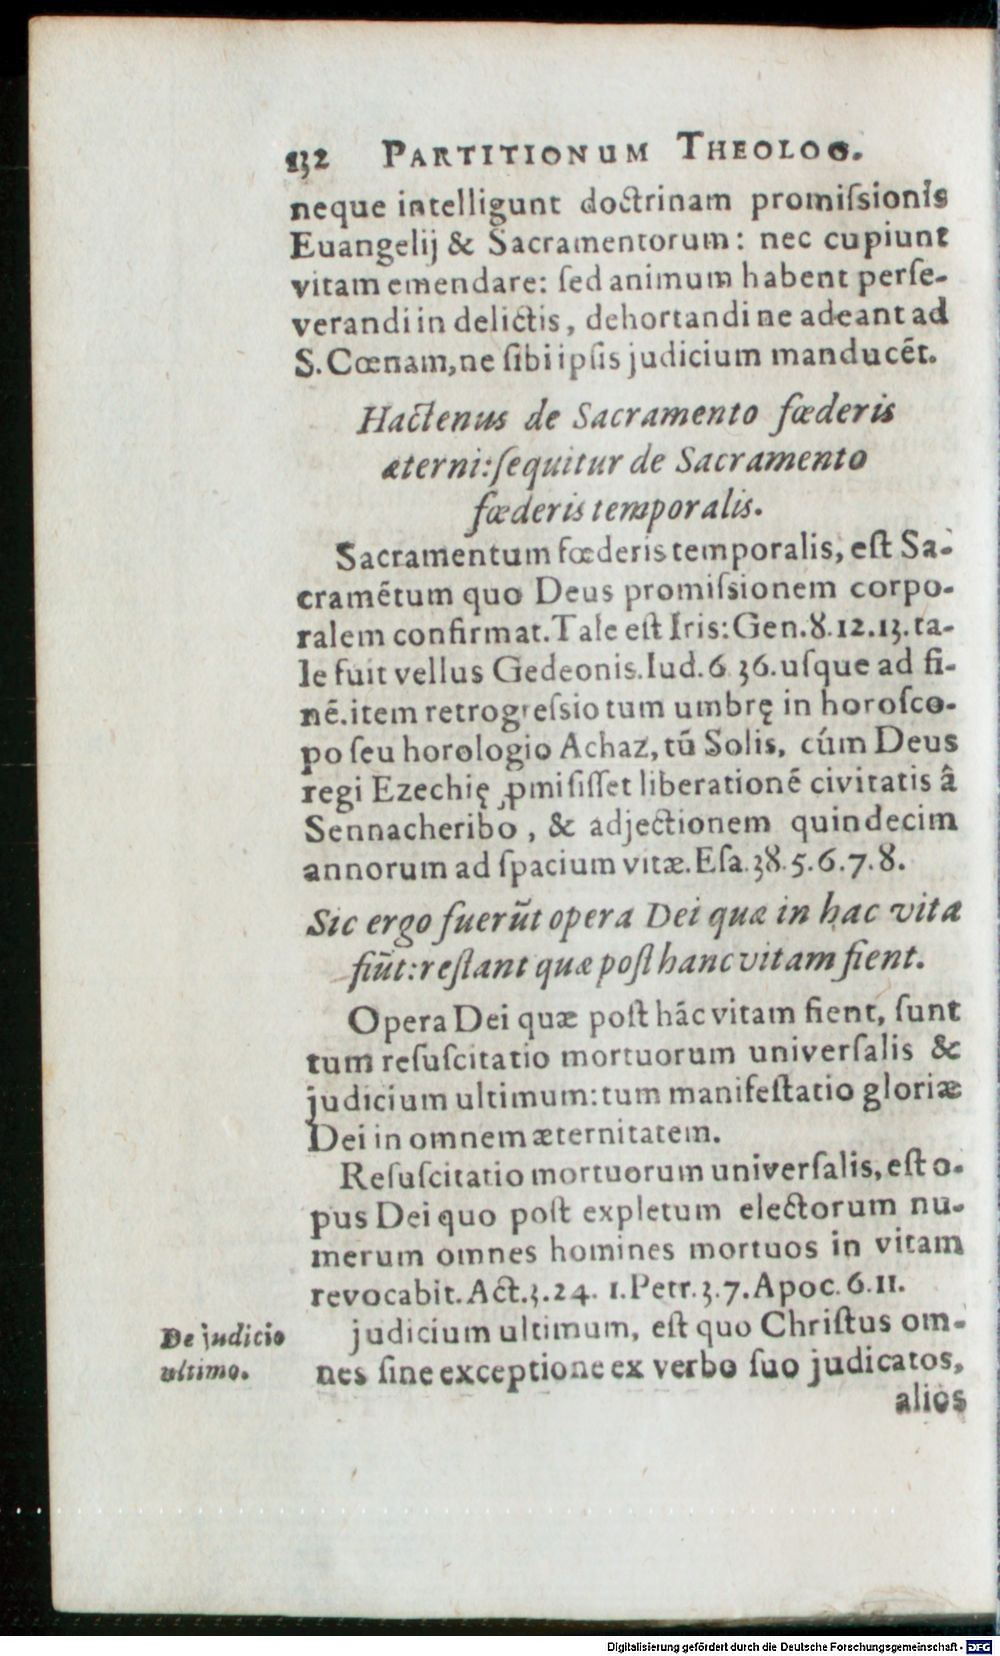 132 PARTITIONUM THEOLOG.
neque intelligunt doctrinam promiſsionis
Euangelij & Sacramentorum: nec cupiunt
vitam emendare: ſed animum habent perſe-
verandi in delictis, dehortandi ne adeant ad
S. Cœnam, ne ſibi ipſis judicium manducẽt.
Hactenus de Sacramento fœderis
æterni: ſequitur de Sacramento
fœderis temporalis.
Sacramentum fœderis temporalis, eſt Sa-
cramẽtum quo Deus promiſsionem corpo-
ralem confirmat. Tale eſt Iris: Gen. 8. 12. 13. ta-
le fuit vellus Gedeonis. Iud. 6 36. uſque ad fi-
nẽ. item retrogreſsio tum umbrę in horoſco-
po ſeu horologio Achaz, tũ Solis, cúm Deus
regi Ezechię ꝓmiſiſſet liberationẽ civitatis â
Sennacheribo, & adjectionem quindecim
annorum ad ſpacium vitæ. Eſa. 38. 5. 6. 7. 8.
Sic ergo fuerũt opera Dei quæ in hac vita
fiũt: reſtant quæ poſt hanc vitam fient.
Opera Dei quæ poſt hãc vitam fient, ſunt
tum reſuſcitatio mortuorum univerſalis &
judicium ultimum: tum manifeſtatio gloriæ
Dei in omnem æternitatem.
Reſuſcitatio mortuorum univerſalis, eſt o-
pus Dei quo poſt expletum electorum nu-
merum omnes homines mortuos in vitam
revocabit. Act. 3. 24. 1. Petr. 3. 7. Apoc. 6. 11.
De judicio
ultimo.
judicium ultimum, eſt quo Chriſtus om-
nes ſine exceptione ex verbo ſuo judicatos,
alios
Digitalisierung gefördert durch die Deutsche Forschungsgemeinschaft - DFG